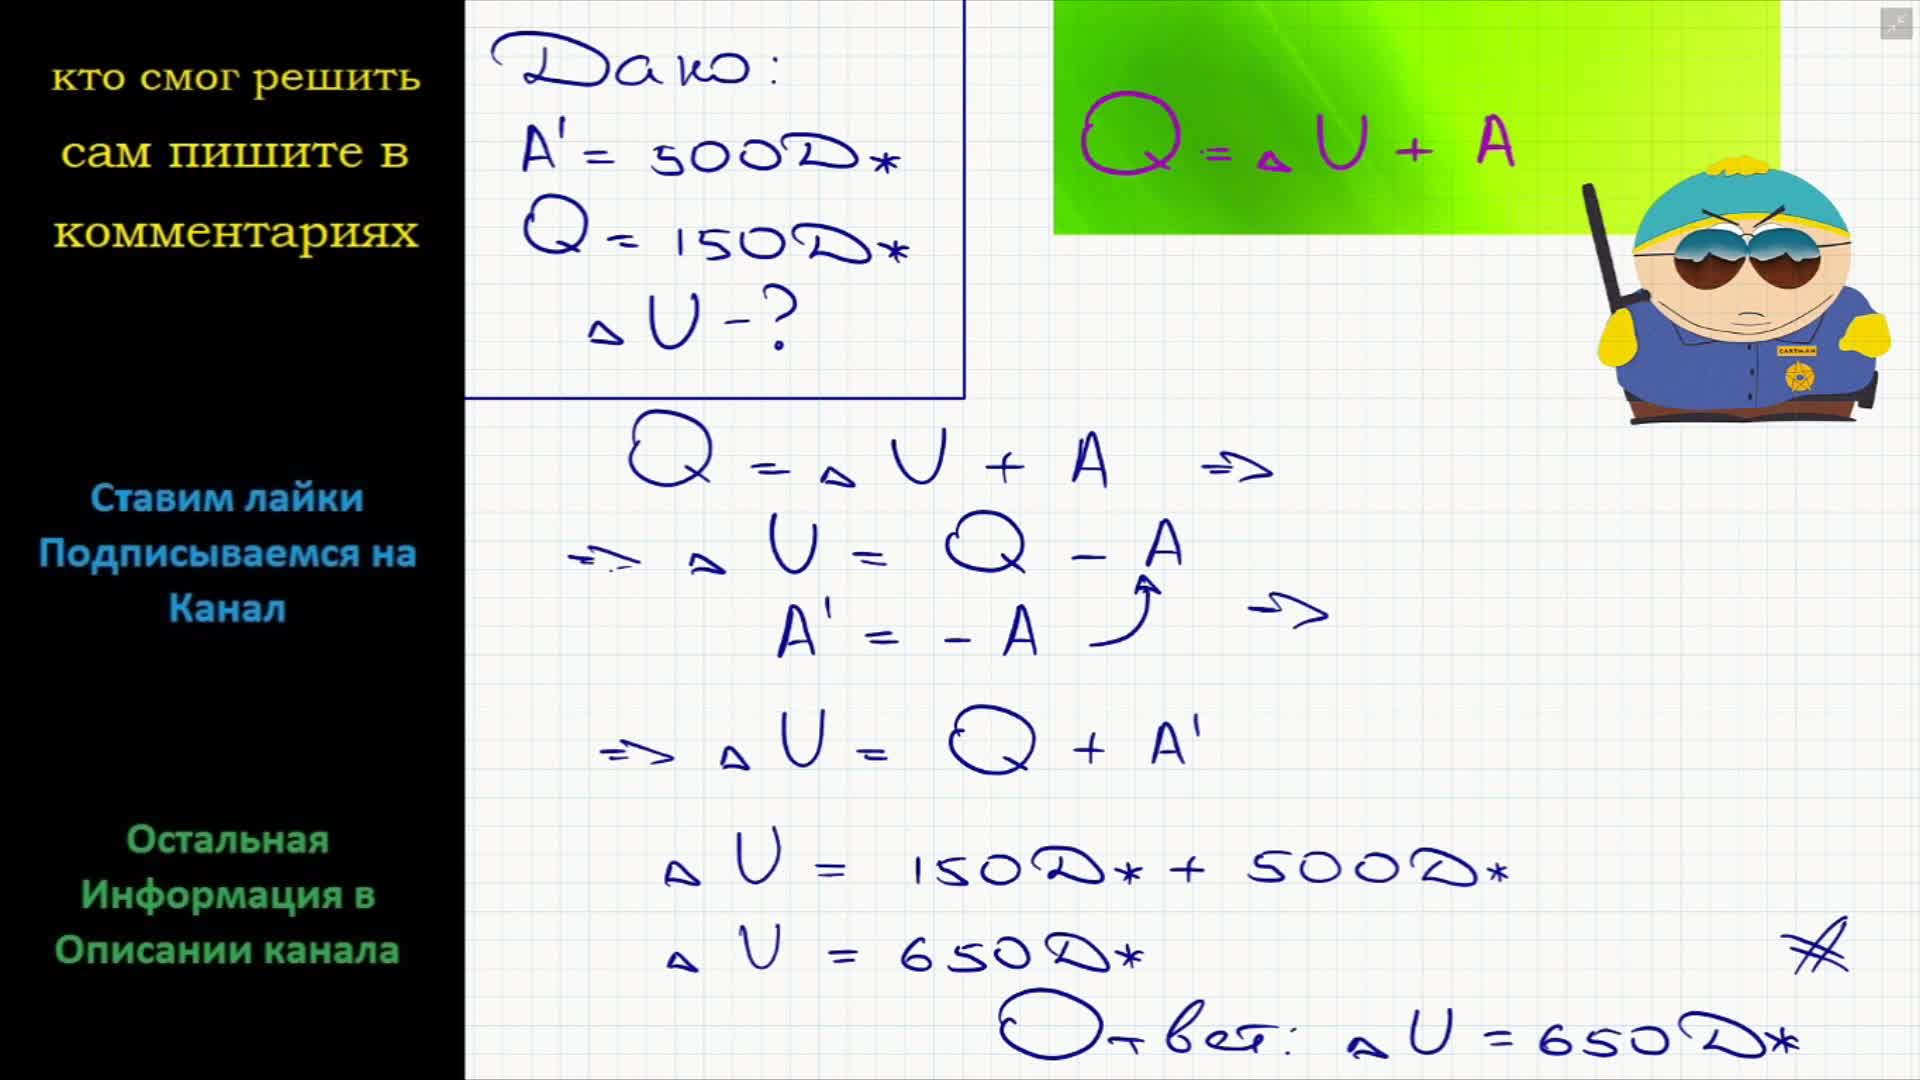 кто смог решить
сам пишите в
комментариях
Ставим лайки
Подписываемся на
Канал
Остальная
Информация в
Описании канала
Дано:
A' = 500 Дж
Q = 150 Дж
ΔU - ?
Q = ΔU + A
CARTMAN
Q = ΔU + A ⇒
⇒ ΔU = Q - A
A' = - A ⇒
⇒ ΔU = Q + A'
ΔU = 150 Дж + 500 Дж
ΔU = 650 Дж
Ответ: ΔU = 650 Дж